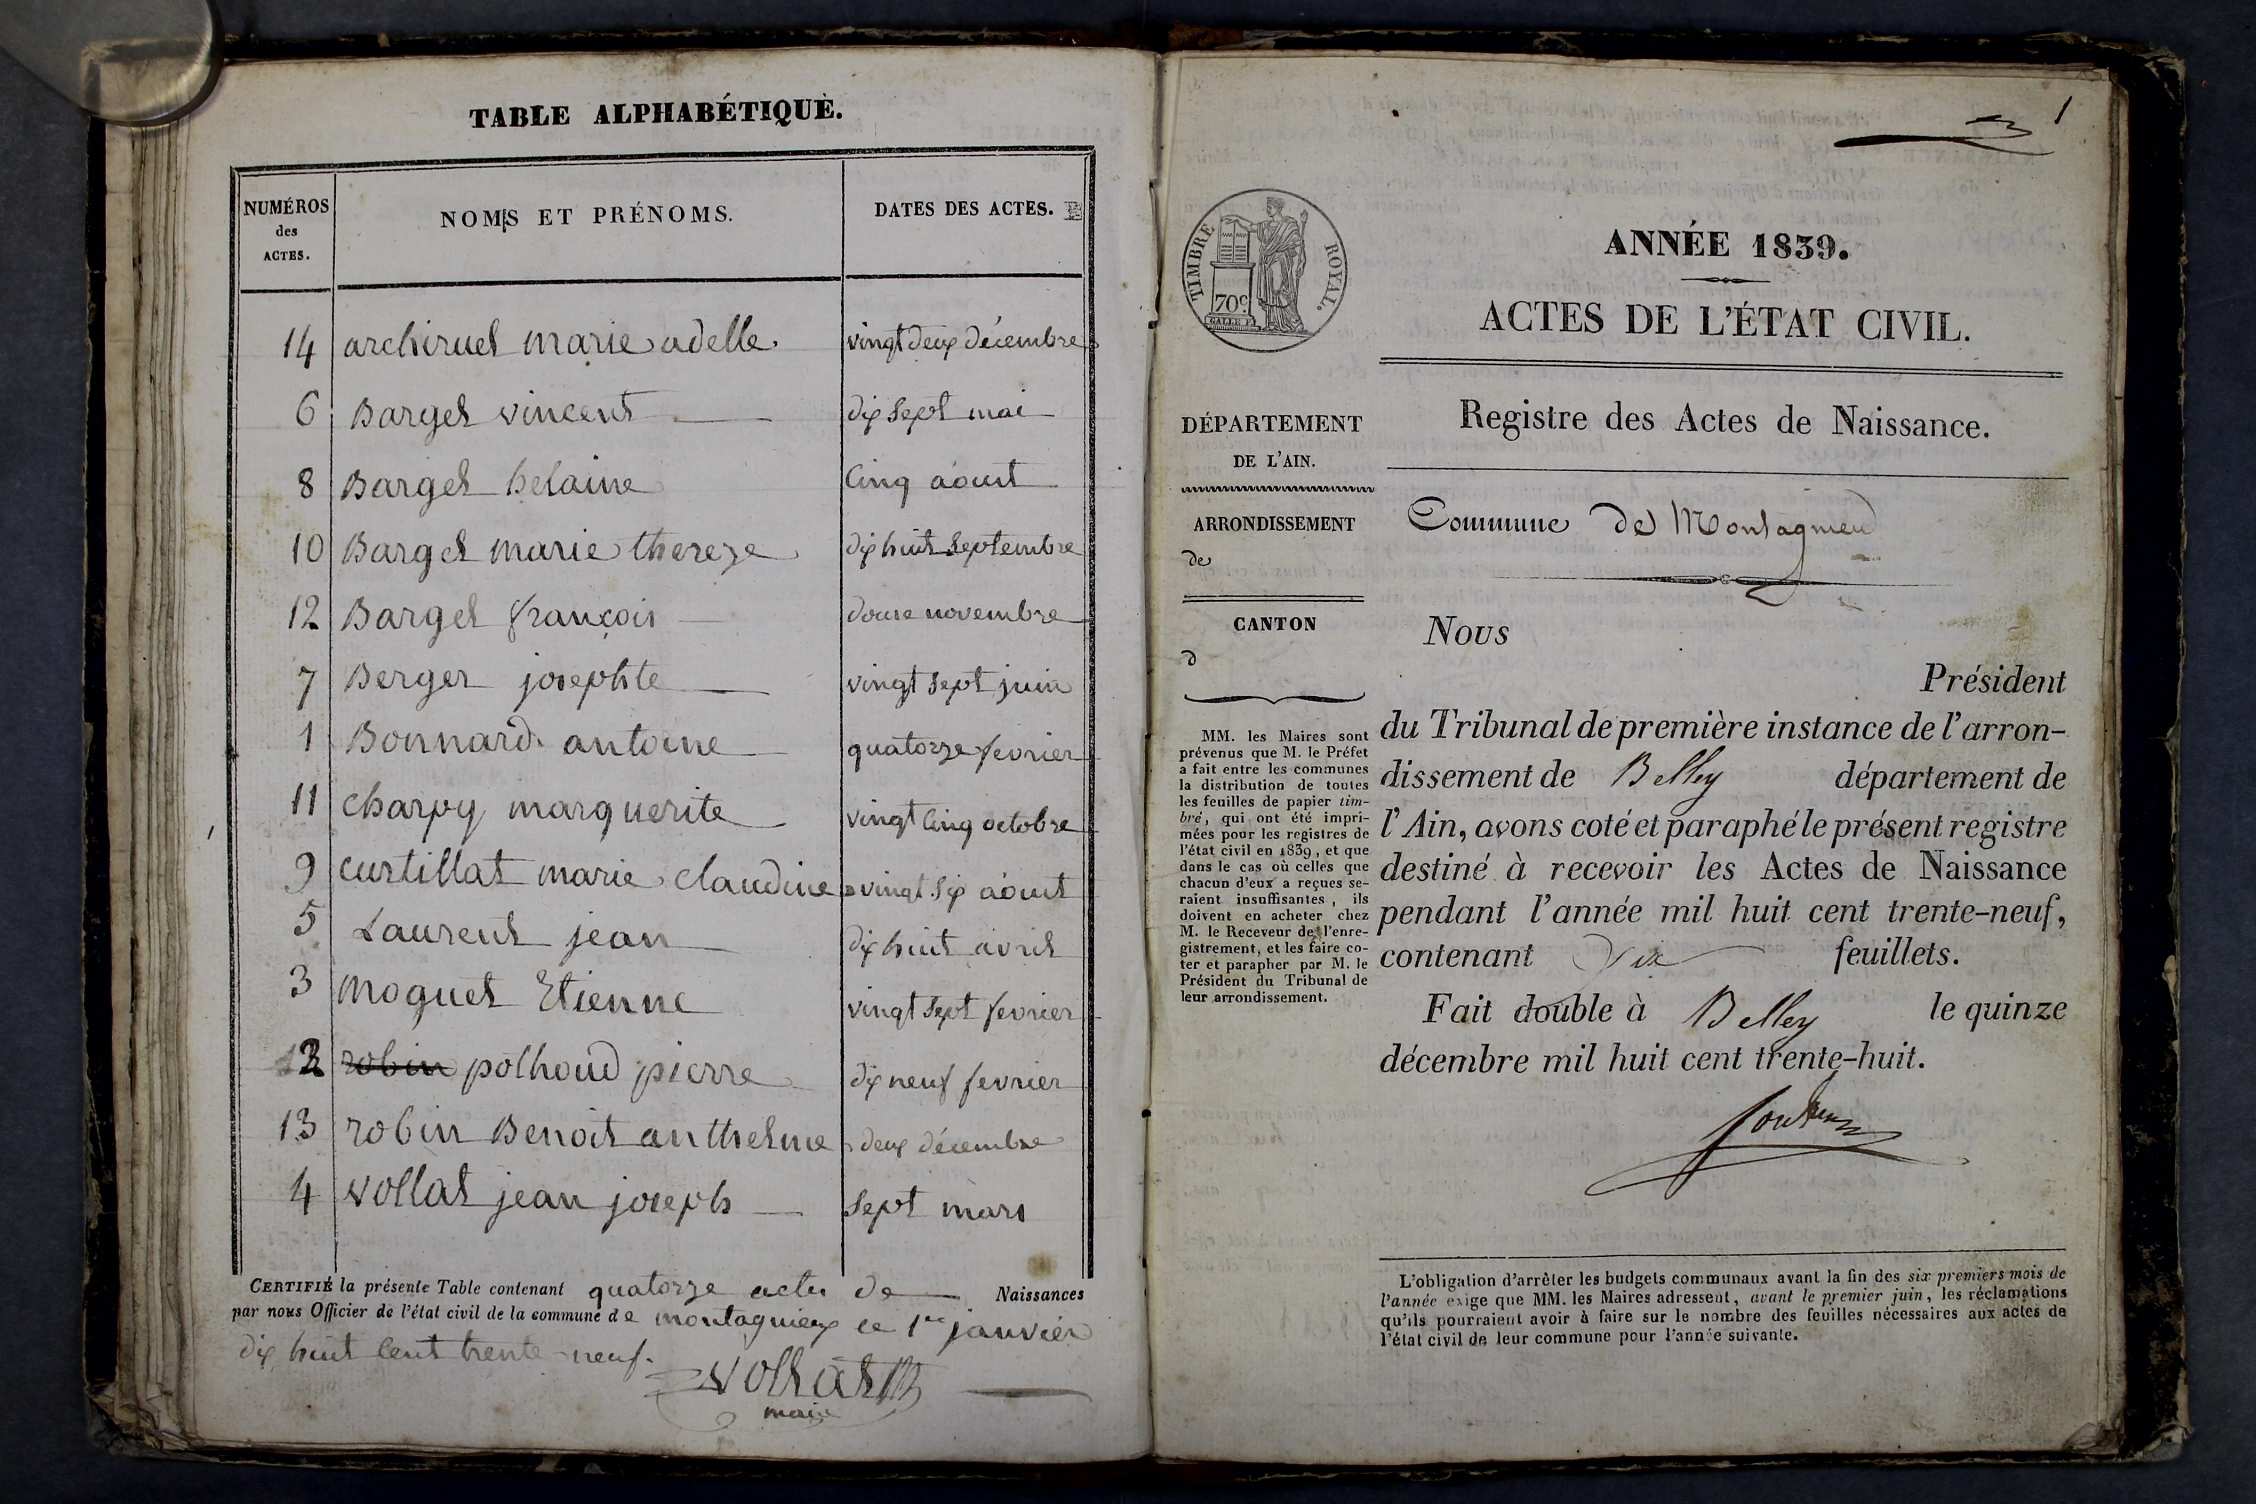 TABLE ALPHABÉTIQUE.
NUMÉROS
des
ACTES.
NOMS ET PRÉNOMS.
DATES DES ACTES.
14 archiruel marie adelle vingt deux décembre
6 Barget vincent dix sept mai
8 Barget helaine Cinq aout
10 Barget marie thereze dix huit septembre
12 Barget françois douse novembre
7 Berger josephte vingt sept juin
1 Bonnard antoine quatorze fevrier
11 charpy marguerite vingt Cinq octobre
9 curtillat marie claudine vingt Six aout
5 Laurent jean dix huit avril
3 moguet Etienne vingt sept fevrier
2 robin polhoud pierre dix neuf fevrier
13 robin Benoit anthelme deux décembre
4 vollat jean joseph Sept mars
CERTIFIÉ la présente Table contenant quatorze actes de Naissances
par nous Officier de l'état civil de la commune de montagnieux ce 1er janvier
dix huit Cent trente neuf.
vollat
maire
1
TIMBRE ROYAL.
70c.
ANNÉE 1839.
ACTES DE L'ÉTAT CIVIL.
DÉPARTEMENT
DE L'AIN.
ARRONDISSEMENT
de
CANTON
d
MM. les Maires sont
prévenus que M. le Préfet
a fait entre les communes
la distribution de toutes
les feuilles de papier tim-
bré, qui ont été impri-
mées pour les registres de
l'état civil en 1839, et que
dans le cas où celles que
chacun d'eux a reçues se-
raient insuffisantes, ils
doivent en acheter chez
M. le Receveur de l'enre-
gistrement, et les faire co-
ter et parapher par M. le
Président du Tribunal de
leur arrondissement.
Registre des Actes de Naissance.
Commune de Montagnieu
Nous
Président
du Tribunal de première instance de l'arron-
dissement de Belley département de
l'Ain, avons coté et paraphé le présent registre
destiné à recevoir les Actes de Naissance
pendant l'année mil huit cent trente-neuf,
contenant Dix feuillets.
Fait double à Belley le quinze
décembre mil huit cent trente-huit.
L'obligation d'arrêter les budgets communaux avant la fin des six premiers mois de
l'année exige que MM. les Maires adressent, avant le premier juin, les réclamations
qu'ils pourraient avoir à faire sur le nombre des feuilles nécessaires aux actes de
l'état civil de leur commune pour l'année suivante.